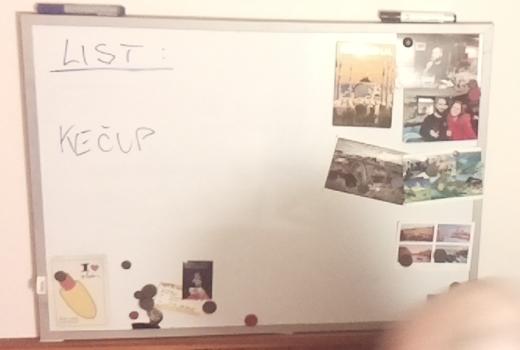 LIST :
KEČUP
I